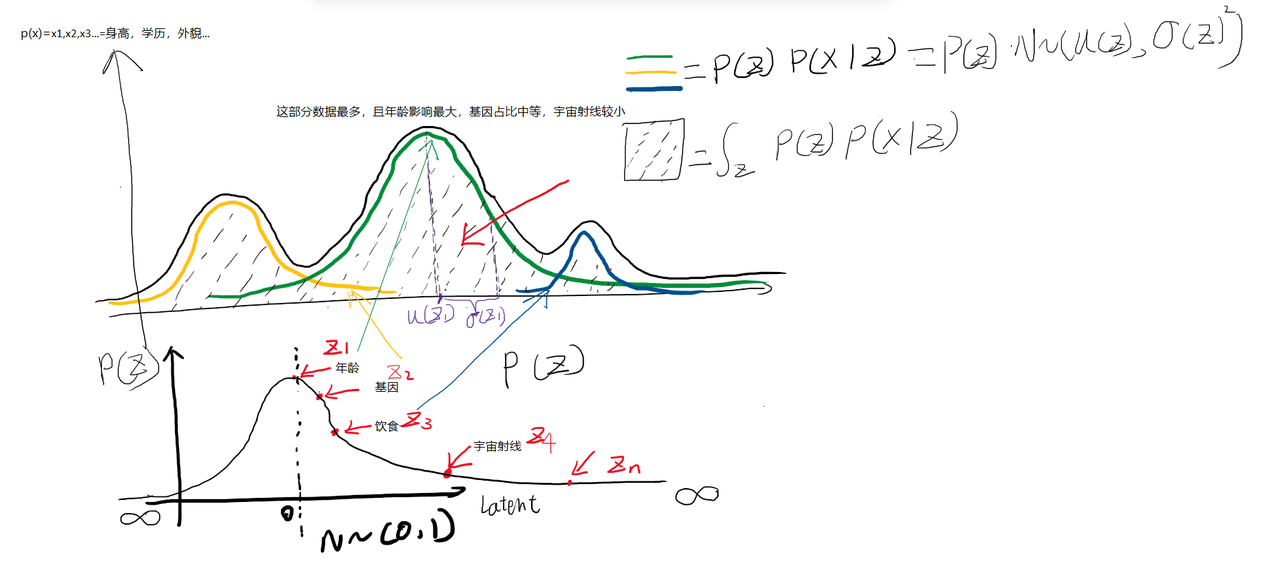 p(x)=x1,x2,x3...=身高，学历，外貌...
= P(z) P(x|z) = P(z) · N~(u(z), σ(z)²)
这部分数据最多，且年龄影响最大，基因占比中等，宇宙射线较小
= ∫z P(z) P(x|z)
u(z1) σ(z1)
P(z)
z1
年龄
z2
P(z)
基因
饮食 z3
宇宙射线 z4
zn
∞
0
Latent
∞
N~(0,1)